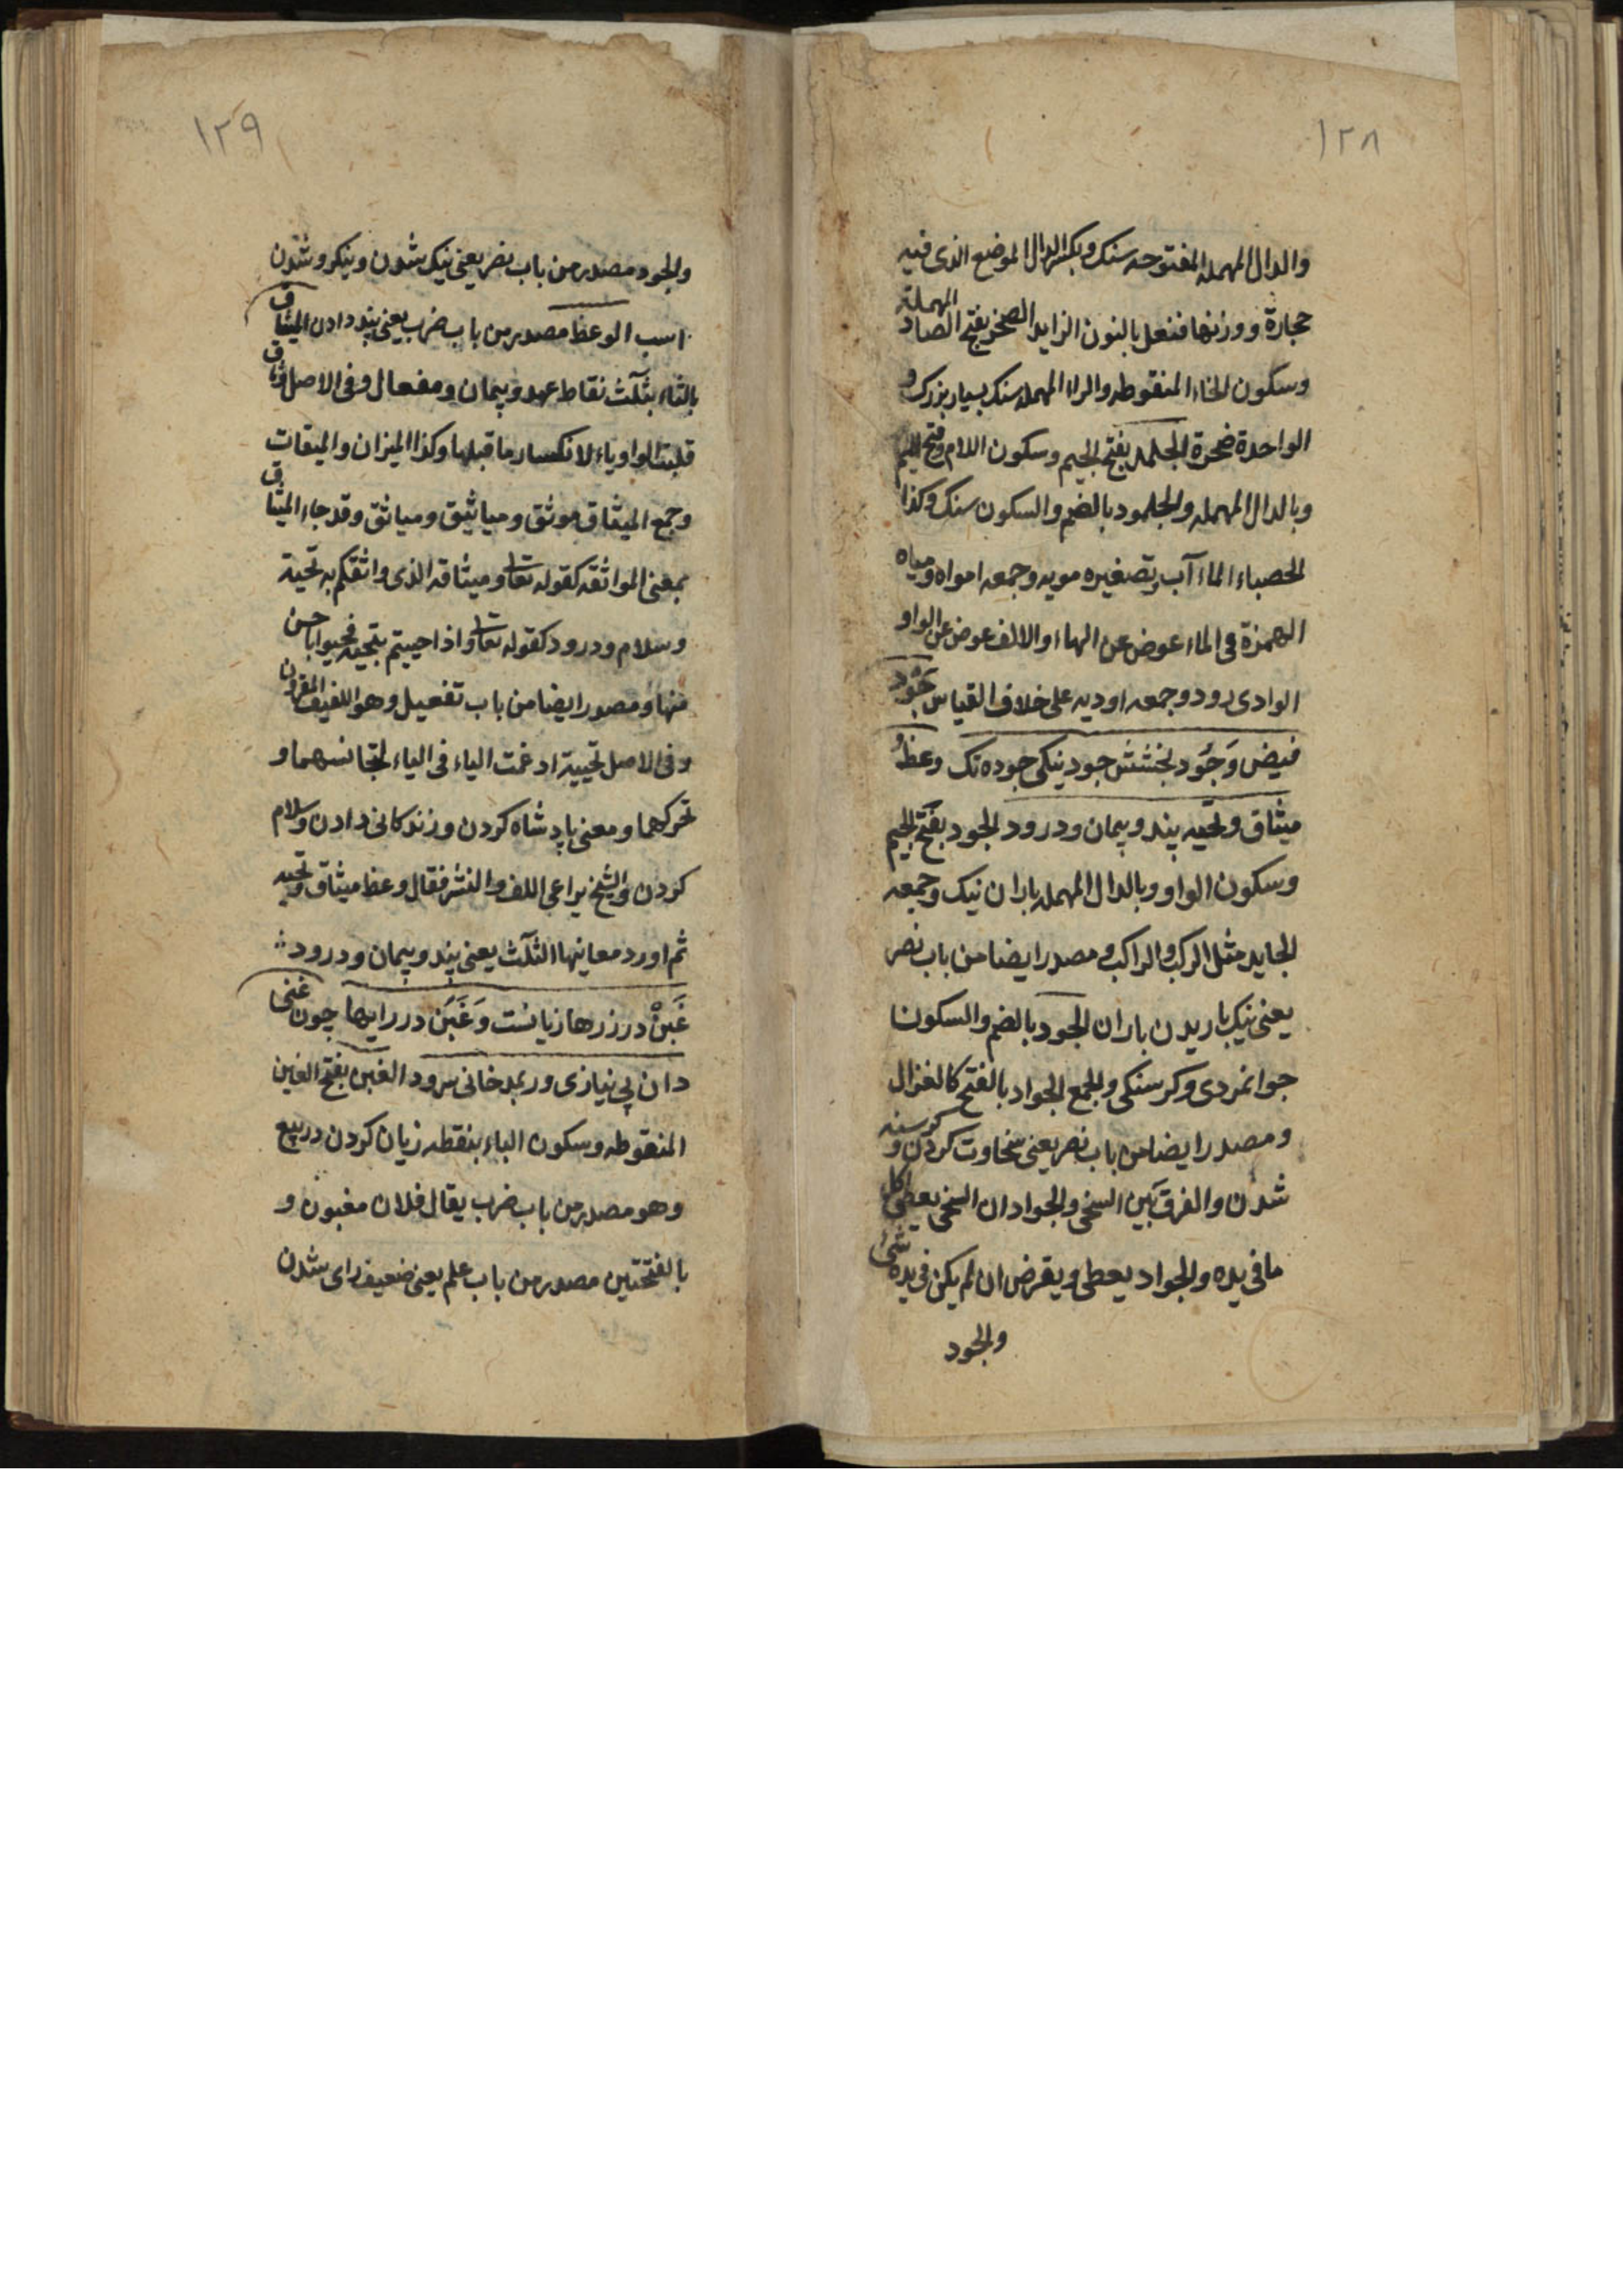 ١٢٨
والدال المهملة المفتوحه سنك وبكسر الدال الموضع الذى فيه
حجارة ووزنها فنعل بالنون الزايد الصخر بفتح الصاد المهملة
وسكون الخاء المنقوطه والراا المهمله سنك بسيار بزرك و
الواحدة صخرة الجلمد بفتح الجيم وسكون اللام وفتح الميم
وبالدال المهمله والجلمود بالضم والسكون سنك وكذا
الحصباء الماء آب وتصغيره مويه وجمعه امواه ومياه
الهمزة فى الماء عوض عن الهاء والالف عوض عن الواو
الوادى رود وجمعه اوديه على خلاف القياس جَوْد
فيض وَجُود بخشش جود نيكى جوده تك وعظُ
ميثاق وتحيه پند وپيمان ودرود الجود بفتح الجيم
وسكون الواو وبالدال المهمله باران نيك وجمعه
الجايد مثل الركب والراكب ومصدر ايضا من باب نصر
يعنى نيك باريدن باران الجود بالضم والسكون
جوانمردى وكرسنكى والجمع الجواد بالفتح كالغزال
ومصدر ايضا من باب نصر يعنى سخاوت كردن و كرسنه
شدن والفرق بَين السخى والجواد ان السخى يعطى اكل
ما فى يده والجواد يعطى ويقرض ان لم يكن فى يده شئ
والجود
١٢٩
والجود مصدر من باب نصر يعنى نيك شدن ونيكرو شدن
اسب الوعظ مصدر من باب ضرب يعنى پند دادن الميثاق
بالثاء بثلث نقاط عهد وپيمان ومفعال وفى الاصل وثاق
قلبت الواو ياء لانكسار ما قبلها وكذا الميزان والميقات
وجمع الميثاق موثق ومياثيق ومياثق وقد جاء الميثاق
بمعنى المواثقه كقوله تعا وميثاقه الذى واثقكم به تحية
وسلام ودرود كقوله تعا واذا حييتم بتحيه فحيوا باحسن
منها ومصدر ايضا من باب تفعيل وهو اللفيف المقرون
وفى الاصل تحيية ادغمت الياء فى الياء لتجانسهما و
تحركهما ومعنى پادشاه كردن وزندكانى دادن وسلام
كردن والشيخ يراعى اللف والنشر فقال وعظ ميثاق وتحيه
ثم اورد معانيها الثلث يعنى پند وپيمان ودرود
غَبْن در زرها زيانست وَغَبَن در رايها چون غنى
دان بى نيازى وربمد خانى سرود الغبن بفتح الغين
المنقوطه وسكون الباء بنقطه زيان كردن در بيع
وهو مصدر من باب ضرب يقال فلان مغبون و
بالفتحتين مصدر من باب علم يعنى ضعيف راى شدن